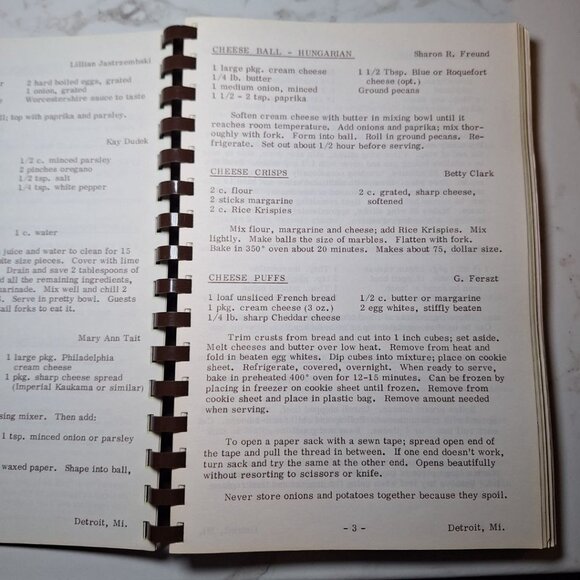 Lillian Jastrzembski
2 hard boiled eggs, grated
1 onion, grated
Worcestershire sauce to taste
; top with paprika and parsley.
Kay Dudek
1/2 c. minced parsley
2 pinches oregano
1/2 tsp. salt
1/4 tsp. white pepper
1 c. water
juice and water to clean for 15
size pieces. Cover with lime
Drain and save 2 tablespoons of
all the remaining ingredients,
Mix well and chill 2
Serve in pretty bowl. Guests
forks to eat it.
Mary Ann Tait
1 large pkg. Philadelphia
cream cheese
1 pkg. sharp cheese spread
(Imperial Kaukama or similar)
mixer. Then add:
1 tsp. minced onion or parsley
waxed paper. Shape into ball,
Detroit, Mi.
CHEESE BALL - HUNGARIAN Sharon R. Freund
1 large pkg. cream cheese 1 1/2 Tbsp. Blue or Roquefort
1/4 lb. butter cheese (opt.)
1 medium onion, minced Ground pecans
1 1/2 - 2 tsp. paprika
Soften cream cheese with butter in mixing bowl until it
reaches room temperature. Add onions and paprika; mix thor-
oughly with fork. Form into ball. Roll in ground pecans. Re-
frigerate. Set out about 1/2 hour before serving.
CHEESE CRISPS Betty Clark
2 c. flour 2 c. grated, sharp cheese,
2 sticks margarine softened
2 c. Rice Krispies
Mix flour, margarine and cheese; add Rice Krispies. Mix
lightly. Make balls the size of marbles. Flatten with fork.
Bake in 350° oven about 20 minutes. Makes about 75, dollar size.
CHEESE PUFFS G. Ferszt
1 loaf unsliced French bread 1/2 c. butter or margarine
1 pkg. cream cheese (3 oz.) 2 egg whites, stiffly beaten
1/4 lb. sharp Cheddar cheese
Trim crusts from bread and cut into 1 inch cubes; set aside.
Melt cheeses and butter over low heat. Remove from heat and
fold in beaten egg whites. Dip cubes into mixture; place on cookie
sheet. Refrigerate, covered, overnight. When ready to serve,
bake in preheated 400° oven for 12-15 minutes. Can be frozen by
placing in freezer on cookie sheet until frozen. Remove from
cookie sheet and place in plastic bag. Remove amount needed
when serving.
To open a paper sack with a sewn tape; spread open end of
the tape and pull the thread in between. If one end doesn't work,
turn sack and try the same at the other end. Opens beautifully
without resorting to scissors or knife.
Never store onions and potatoes together because they spoil.
- 3 - Detroit, Mi.